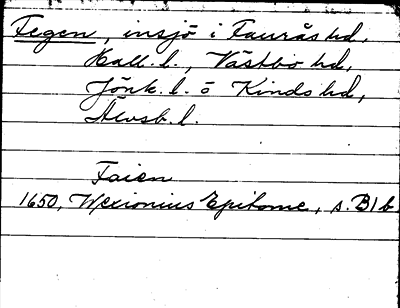 Fegen, insjö i Faurås hd,
Hall. l., Västbo hd,
Jönk. l. o Kinds hd,
Älvsb. l.
Faien
1650, Wexionius Epitome, s. B1b